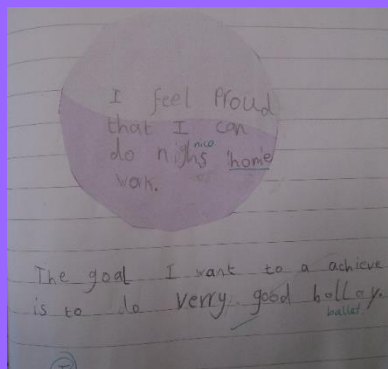 I feel Proud
that I can
nice
do nighs home
wak.
The goal I want to a achieve
is to do verry good ballay.
ballet